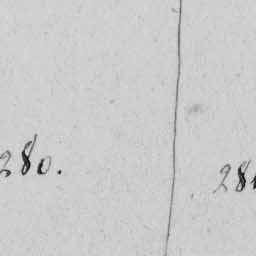 280.
281